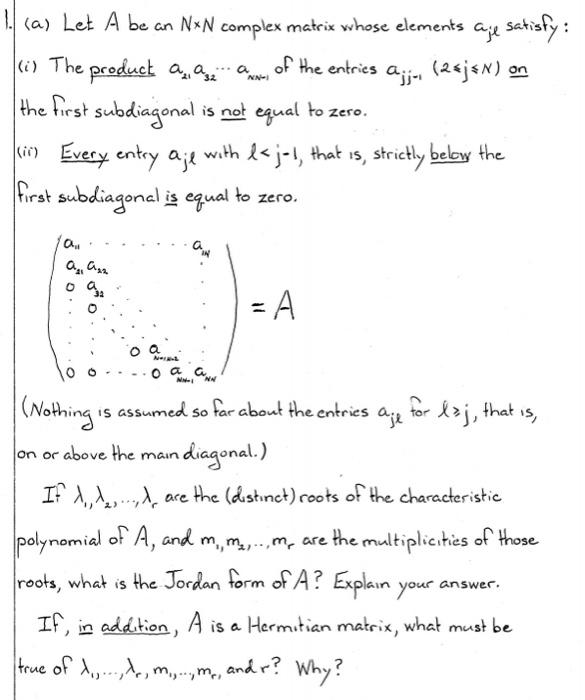 1. (a) Let A be an N×N complex matrix whose elements a_{jl} satisfy:
(i) The product a_{21} a_{32} ··· a_{NN-1} of the entries a_{jj-1} (2≤j≤N) on
the first subdiagonal is not equal to zero.
(ii) Every entry a_{jl} with l<j-1, that is, strictly below the
first subdiagonal is equal to zero.
a_{11} · · · · · · · a_{1N}
a_{21} a_{22}
0 a_{32}
0
= A
0 a_{N-1N-2}
0 0 · · · · · 0 a_{NN-1} a_{NN}
(Nothing is assumed so far about the entries a_{jl} for l≥j, that is,
on or above the main diagonal.)
If λ_1, λ_2, ..., λ_r are the (distinct) roots of the characteristic
polynomial of A, and m_1, m_2, ..., m_r are the multiplicities of those
roots, what is the Jordan form of A? Explain your answer.
If, in addition, A is a Hermitian matrix, what must be
true of λ_1, ..., λ_r, m_1, ..., m_r, and r? Why?